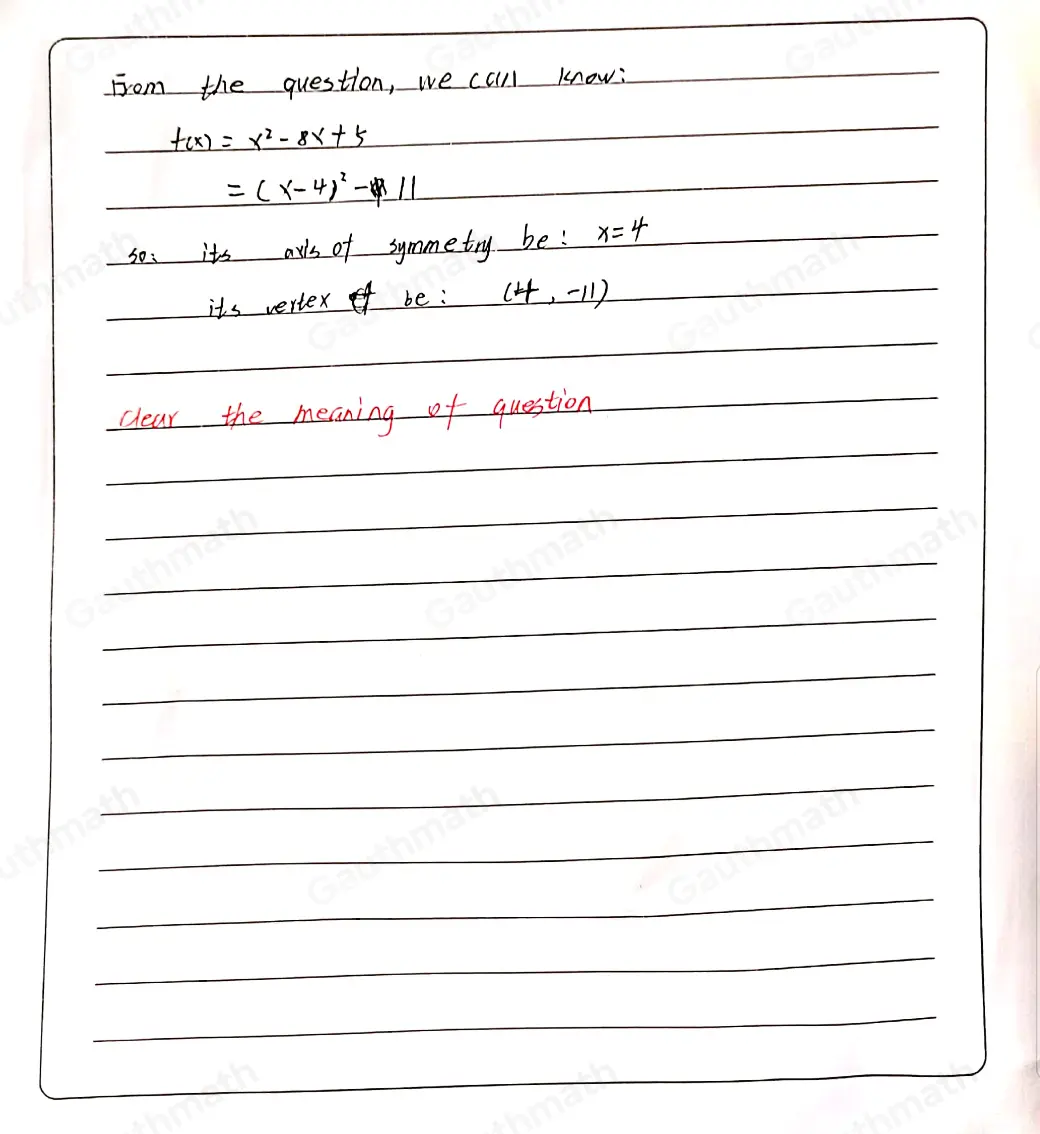 From the question, we can know:
f(x) = x² - 8x + 5
= (x - 4)² - 11
so: its axis of symmetry be: x = 4
its vertex be: (4, -11)
clear the meaning of question
Gauthmath